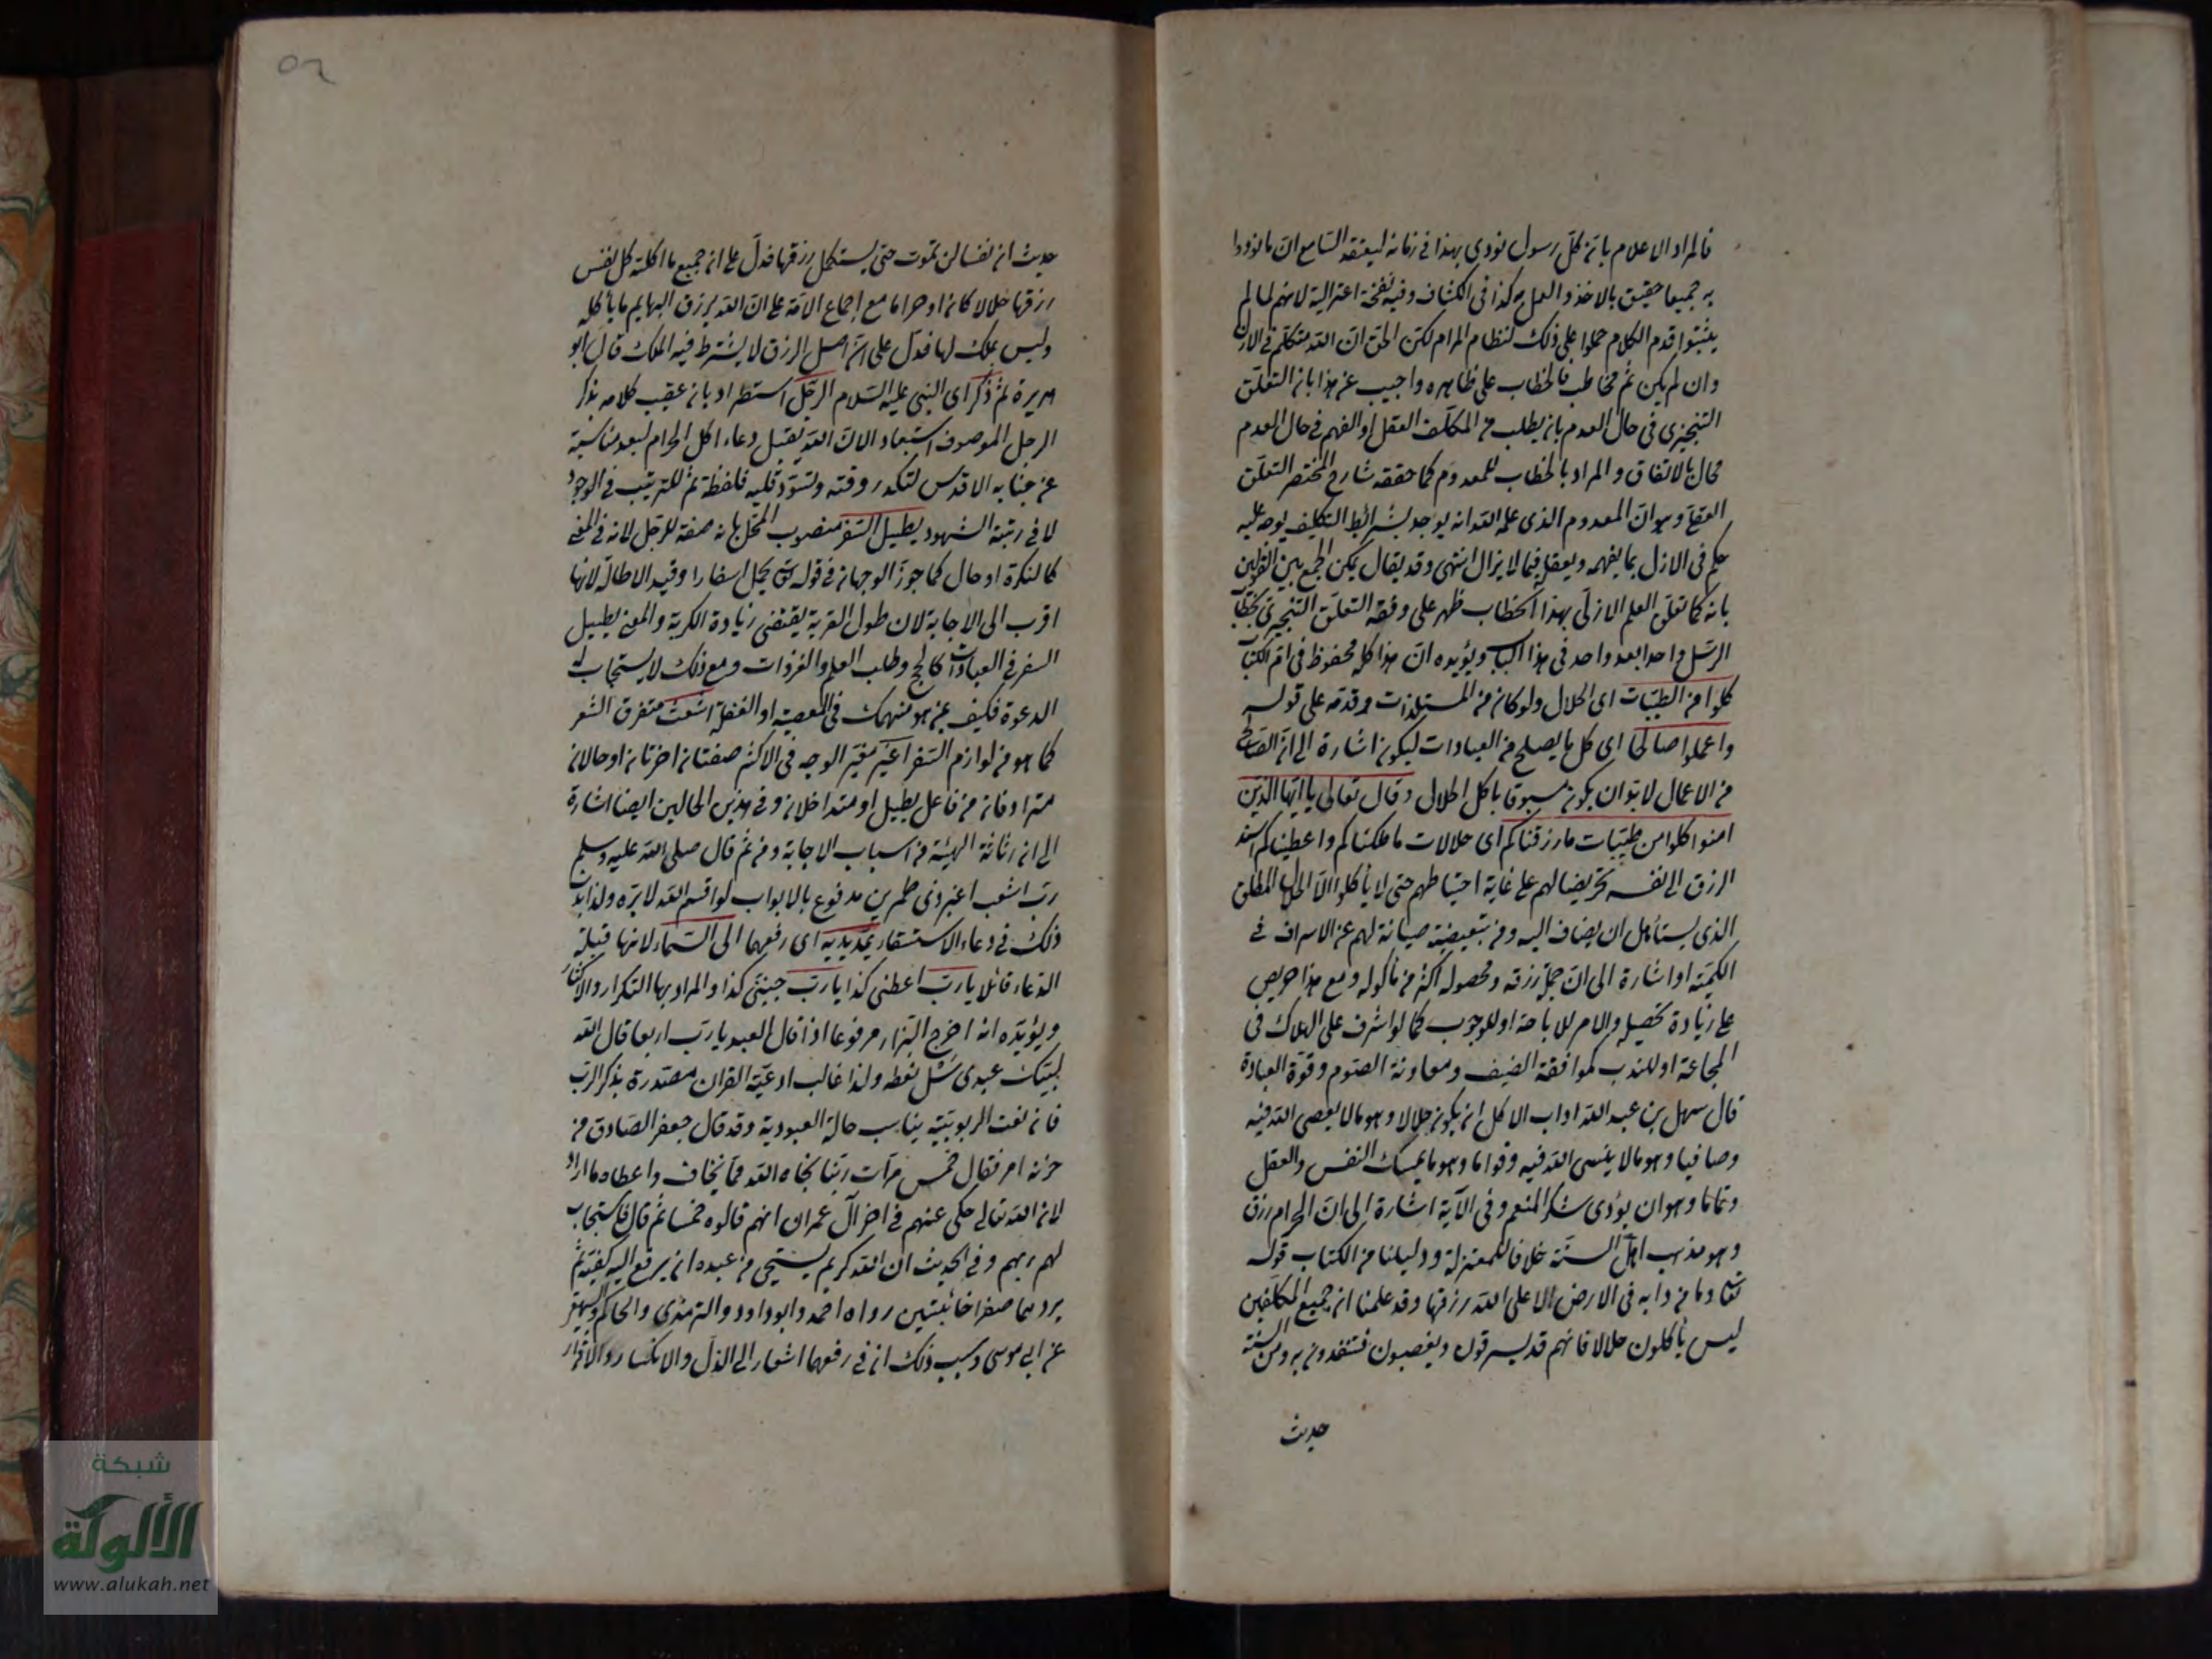 فالمراد الاعلام بان كل رسول نودي بهذا في زمانه ليعتقد السامع ان ما نودوا
به جميعا حقيق بالاخذ والعمل به كذا في الكشاف وفيه نفخة اعتزالية لانهم لما لم
يثبتوا قدم الكلام حملوا على ذلك لنظام المرام لكن الحق ان الله متكلم في الازل
وان لم يكن ثم مخاطب فالخطاب على ظاهره واجيب عن هذا بان التعلق
التنجيزي في حال العدم بان يطلب من المكلف العقل او الفهم في حال العدم
محال بالاتفاق والمراد بالخطاب للمعدوم كما حققه شارح المختصر التعلق
العقلي وهو ان المعدوم الذي علم الله انه يوجد بشرائط التكليف يوجه عليه
حكم في الازل بما يفهمه ويعقله فيما لا يزال انتهى وقد يقال يمكن الجمع بين القولين
بانه كما تعلق العلم الازلي بهذا الخطاب ظهر على وفقه التعلق التنجيزي بخطاب
الرسل واحدا بعد واحد في هذا الباب ويؤيده ان هذا كله محفوظ في ام الكتاب
كلوا من الطيبات اى الحلال ولو كان من المستلذات وقدمه على قوله
واعملوا صالحا اى كل ما يصلح من العبادات ليكون اشارة الى ان الصالح
من الاعمال لا بد وان يكون مسبوقا باكل الحلال وقال تعالى يا ايها الذين
امنوا كلوا من طيبات ما رزقناكم اى حلالات ما ملكناكم واعطيناكم اسند
الرزق الى نفسه تحريضا لهم على غاية احتياطهم حتى لا ياكلوا الا الحلال المطلق
الذي يستأهل ان يضاف اليه ومن تبعيضية صيانة لهم عن الاسراف في
الكمية او اشارة الى ان جل رزقه ومحصوله اكثر من مأكوله ومع هذا حريص
على زيادة تحصيله والامر للاباحة او للوجوب كما لو اشرف على الهلاك في
المجاعة او للندب كموافقة الضيف ومعاونة الصوم وقوة العبادة
قال سهل بن عبد الله اداب الاكل ان يكون حلالا وهو ما لا يعصى الله فيه
وصافيا وهو ما لا ينسى الله فيه وقواما وهو ما يمسك النفس والعقل
وتماما وهو ان يؤدى شكر المنعم وفى الآية اشارة الى ان الحرام رزق
وهو مذهب اهل السنة خلافا للمعتزلة ودليلنا من الكتاب قوله
تعالى وما من دابة في الارض الا على الله رزقها وقد علمنا ان جميع المكلفين
ليس ياكلون حلالا فانهم قد يسرقون ويغصبون فتتغذون به ومن السنة
حديث
حديث ان نفسا لن تموت حتى يستكمل رزقها فدل على ان جميع ما اكلته كل نفس
رزقها حلالا كان او حراما مع اجماع الامة على ان الله يرزق البهايم ما يأكله
وليس بملك لها فدل على ان اصل الرزق لا يشترط فيه الملك قال ابو
هريرة ثم ذكر اى النبي عليه السلام الرجل استطراد بان عقب كلامه بذكر
الرجل الموصوف استبعادا لان الله يقبل دعاء اكل الحرام لبعد مناسبته
عن جنابه الاقدس لتكدر وقته وتسود قلبه فلفظة ثم للترتيب في الوجود
لا في رتبة الشهود يطيل السفر منصوب المحل بانه صفة للرجل لانه في المعنى
كالنكرة او حال كما جوز الوجهان في قوله تعالى يحمل اسفارا وقيد الاطالة لانها
اقرب الى الاجابة لان طول الغربة يقتضى زيادة الكربة والمعنى يطيل
السفر في العبادات كالحج وطلب العلم والغزوات ومع ذلك لا يستجاب له
الدعوة فكيف بمن هو منهمك في المعصية او الغفلة اشعث متفرق الشعر
كما هو من لوازم السفر اغبر مغبر الوجه في الاكثر صفتان اخرتان او حالان
مترادفان من فاعل يطيل او متداخلان وفي هذين الحالين ايضا اشارة
الى ان رثاثة الهيئة من اسباب الاجابة ومن ثم قال صلى الله عليه وسلم
رب اشعث اغبر ذي طمرين مدفوع بالابواب لو اقسم الله لابره ولذا يندب
ذلك في دعاء الاستسقاء يمد يديه اى رفعهما الى السماء لانها قبلة
الدعاء قائلا يا رب اعطني كذا يا رب جنبني كذا والمراد بها التكرار والاكثار
ويؤيده انه اخرج البزار مرفوعا اذا قال العبد يا رب اربعا قال الله
لبيك عبدي سل تعطه ولذا غالب ادعية القران مصدرة بذكر الرب
فان نعت الربوبية يناسب حالة العبودية وقد قال جعفر الصادق من
حزنه امر فقال خمس مرات ربنا نجاه الله مما يخاف واعطاه ما اراد
لان الله تعالى حكى عنهم في اخر آل عمران انهم قالوه خمسا ثم قال فاستجاب
لهم ربهم وفي الحديث ان الله كريم يستحي من عبده ان يرفع اليه كفيه ثم
يردهما صفرا خائبتين رواه احمد وابوداود والترمذي والحاكم والبيهقي
عن ابى موسى وسبب ذلك ان في رفعهما اشعار الى الذل والانكسار والاقرار
شبكة
الألوكة
www.alukah.net